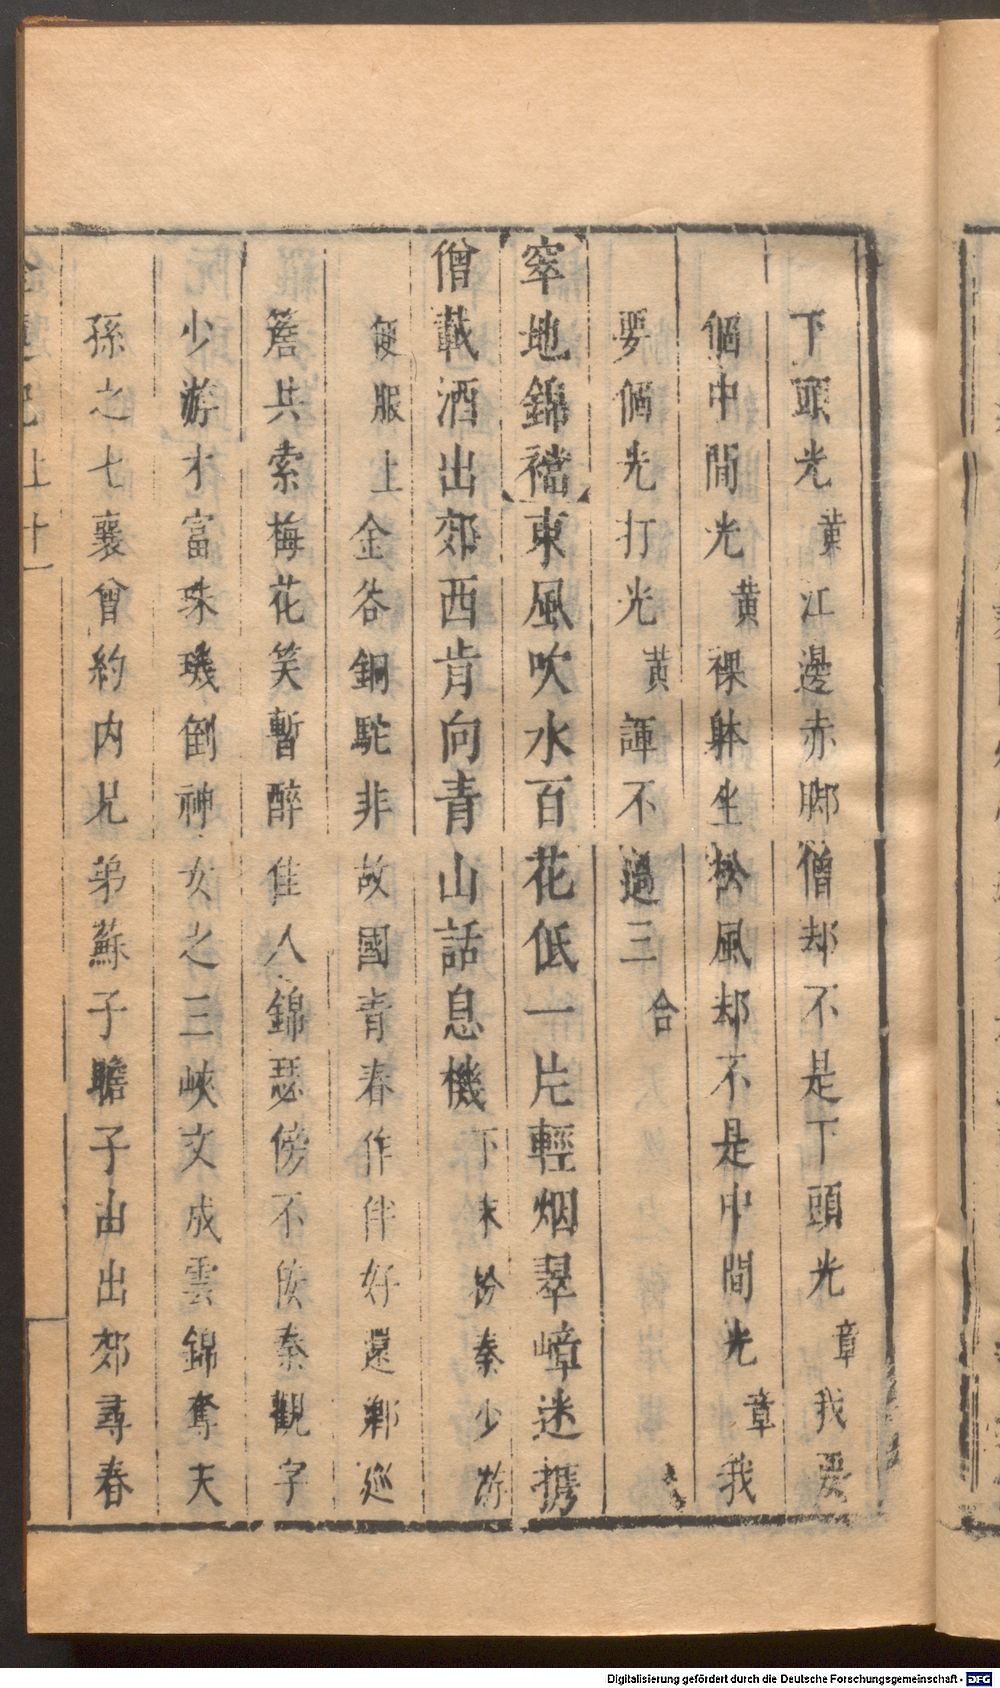 下頭光黄江邊赤脚僧却不是下頭光章我要
個中間光黄裸躰坐松風却不是中間光章我
要個先打光黄諢不過三合
窣地錦襠東風吹水百花低一片輕烟翠嶂迷携
僧載酒出郊西肯向青山話息機下末紛秦少游
便服上金谷銅駝非故國青春作伴好還鄉巡
簷共索梅花笑暫醉佳人錦瑟傍不佞秦觀字
少游才富珠璣倒神女之三峽文成雲錦奪天
孫之七襄曾約內兄弟蘇子瞻子由出郊尋春
上 十一
Digitalisierung gefördert durch die Deutsche Forschungsgemeinschaft - DFG